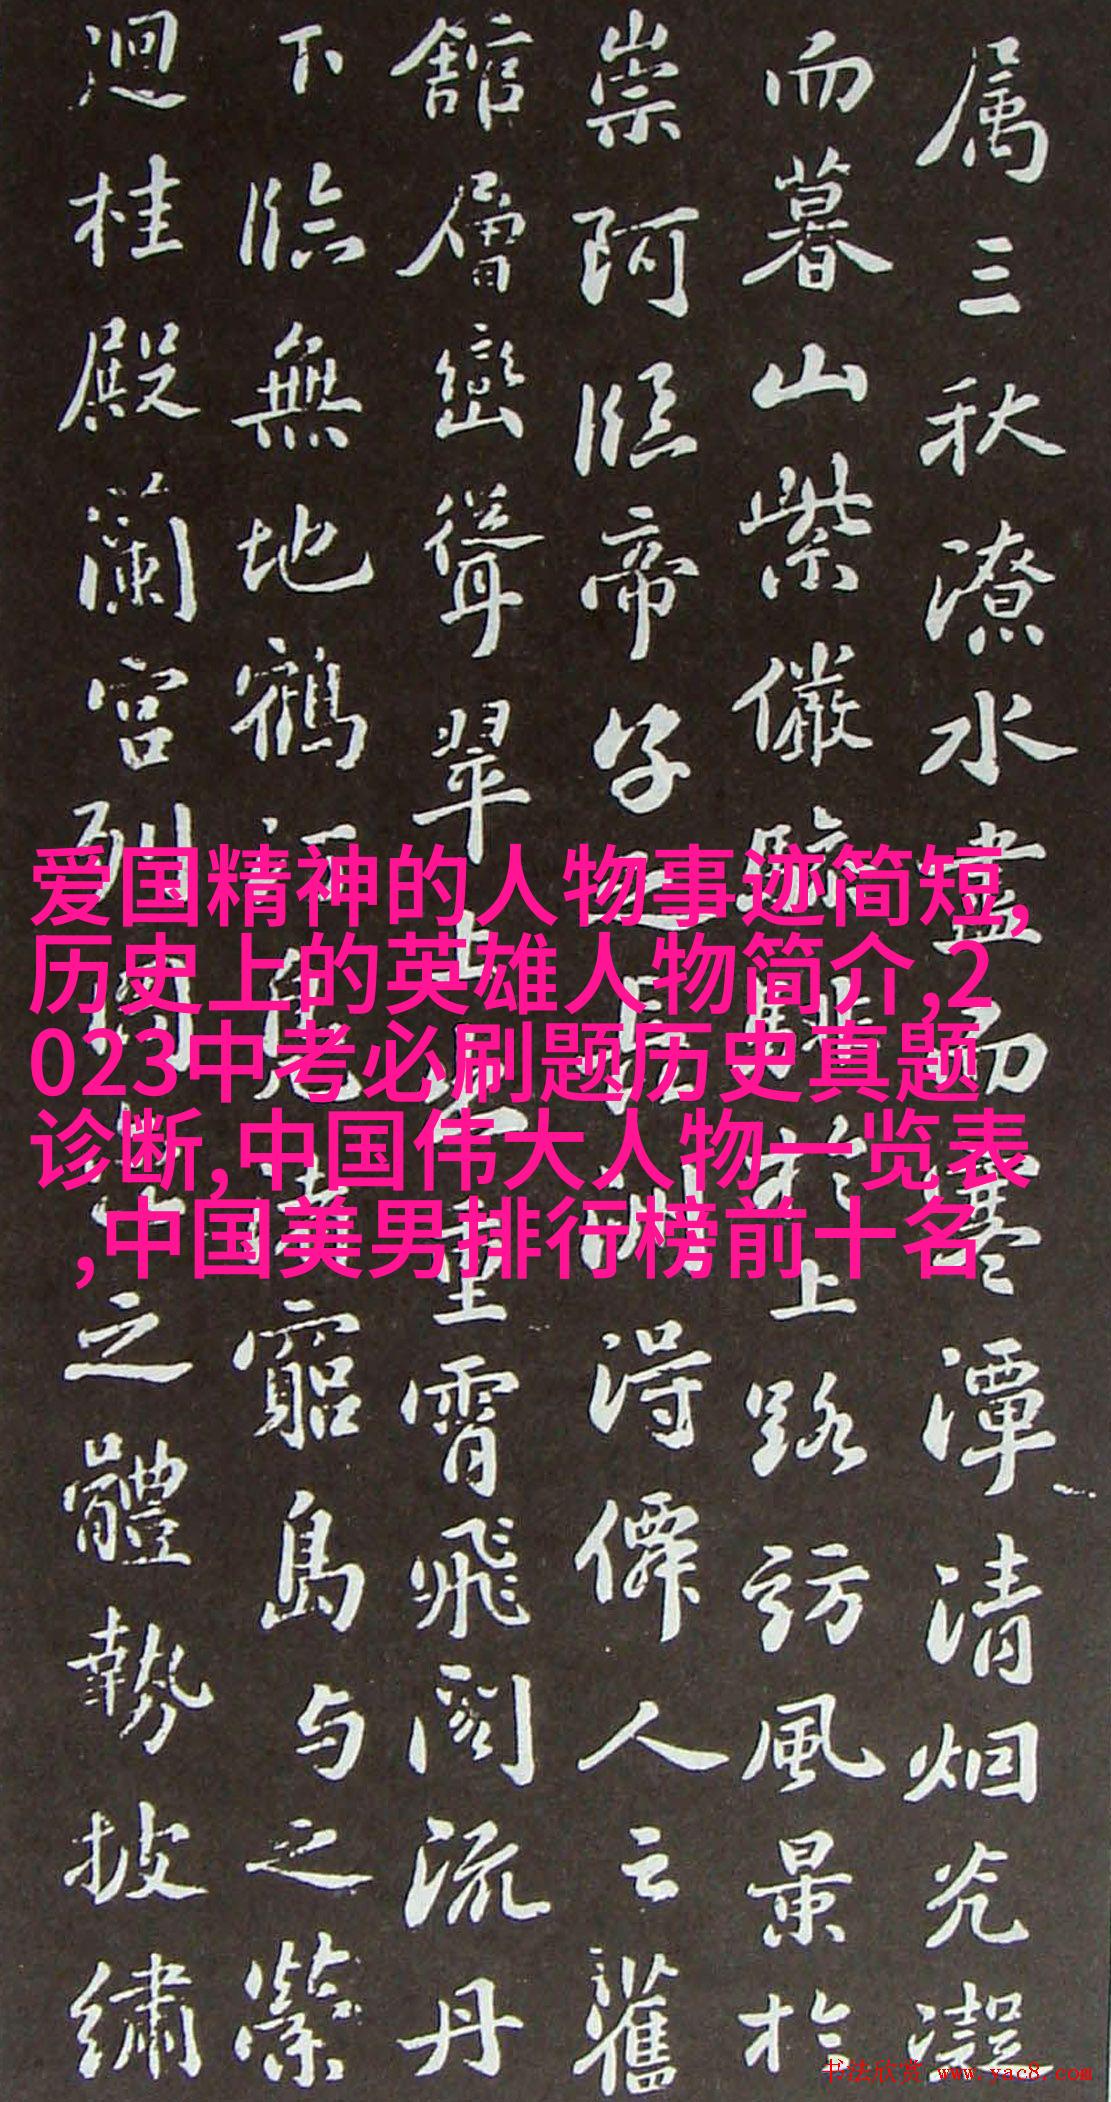 属三秋潦水盡寒潭清烟光凝
而暮山紫儼驂騑於上路訪風景於
崇阿臨帝子之長洲得僊人之舊
舘層巒聳翠上出重霄飛閣流丹
下臨無地鶴汀鳧渚窮島与之縈
迴桂殿蘭宮列岡之體勢披繡
爱国精神的人物事迹简短,
历史上的英雄人物简介,2
023中考必刷题历史真题
诊断,中国伟大人物一览表
,中国美男排行榜前十名
书法欣赏 www.yac8.com